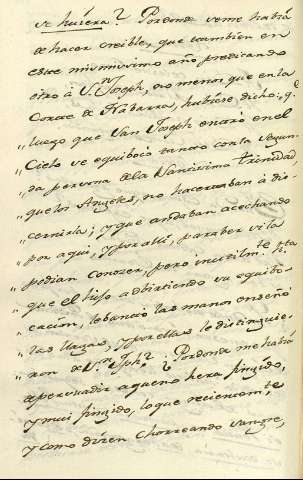 se huviera? Pordonde seme habia
de hacer creible, que tambien en
este mismisimo año, predicando
otro à S.n Joseph, no menos que en la
Corte de Nabarra, hubiese dicho: q.e
"luego que San Joseph entró en el
"Cielo se equibocò tanto con la Segun-
"da persona de la Santisima Trinidad,
"que los Angeles, no hacertaban à dis-
"cernirla; y que andaban acechando
"por aqui, y por alli, para ber si la
"podian conozer, pero inutilm.te h.ta
"que el hijo adbirtiendo su equibo-
"cacion, lebantò las manos enseñò
"las llagas, y por ellas le distinguie-
"ron de S.n Jph? Pordonde me habia
à persuadir aqueno hera fingido,
y mui fingido, lo que recientem.te
y como dizen chorreando sangre,